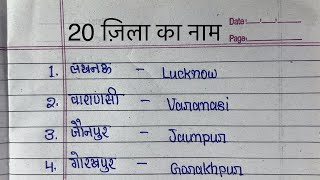 20 ज़िला का नाम
Date:
Page:
1. लखनऊ - Lucknow
2. वाराणसी - Varanasi
3. जौनपुर - Jaunpur
4. गोरखपुर - Gorakhpur